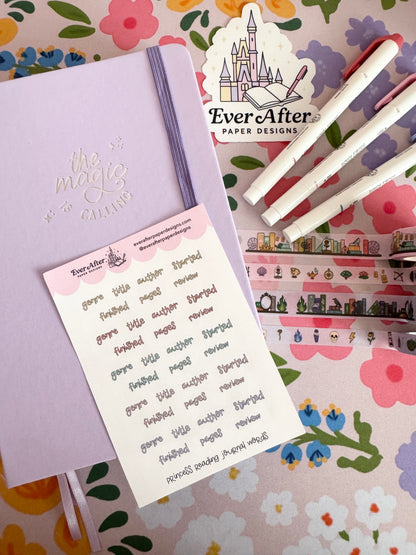 Ever After
PAPER DESIGNS
the
magic
is
CALLING
everafterpaperdesigns.com
@everafterpaperdesigns
Ever After
PAPER DESIGNS
genre title author started
finished pages review
genre title author started
finished pages review
genre title author started
finished pages review
genre title author started
finished pages review
genre title author started
finished pages review
princess reading journal words